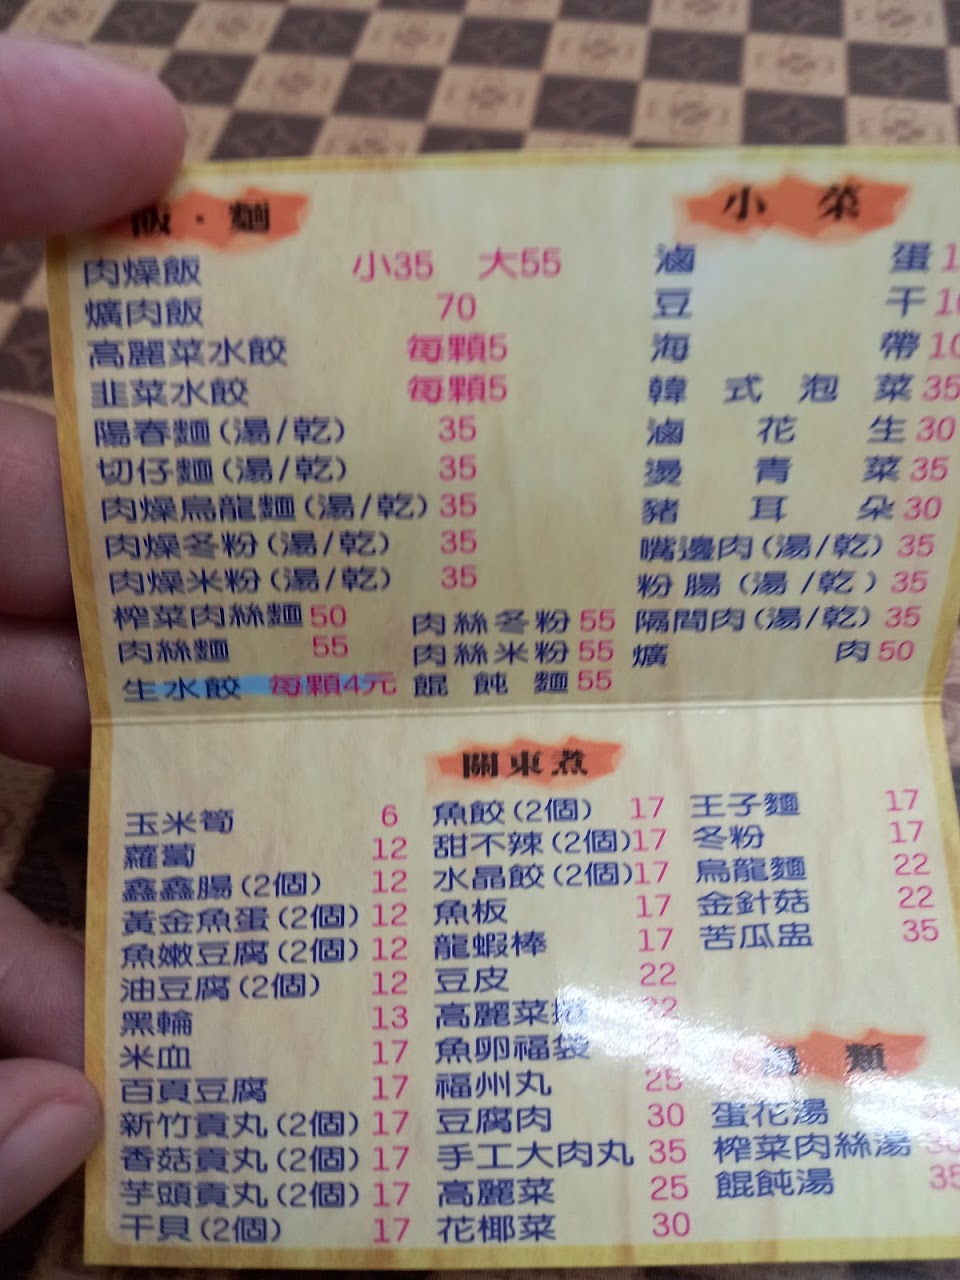 飯·麵
肉燥飯 小35 大55
爌肉飯 70
高麗菜水餃 每顆5
韭菜水餃 每顆5
陽春麵(湯/乾) 35
切仔麵(湯/乾) 35
肉燥烏龍麵(湯/乾) 35
肉燥冬粉(湯/乾) 35
肉燥米粉(湯/乾) 35
榨菜肉絲麵 50
肉絲麵 55
生水餃 每顆4元
肉絲冬粉 55
肉絲米粉 55
餛飩麵 55
小菜
滷蛋
豆干
海帶
韓式泡菜 35
滷花生 30
燙青菜 35
豬耳朵 30
嘴邊肉(湯/乾) 35
粉腸(湯/乾) 35
隔間肉(湯/乾) 35
爌肉 50
關東煮
玉米筍 6
蘿蔔 12
鑫鑫腸(2個) 12
黃金魚蛋(2個) 12
魚嫩豆腐(2個) 12
油豆腐(2個) 12
黑輪 13
米血 17
百頁豆腐 17
新竹貢丸(2個) 17
香菇貢丸(2個) 17
芋頭貢丸(2個) 17
干貝(2個) 17
魚餃(2個) 17
甜不辣(2個) 17
水晶餃(2個) 17
魚板 17
龍蝦棒 17
豆皮 22
高麗菜
魚卵福袋
福州丸 25
豆腐肉 30
手工大肉丸 35
高麗菜 25
花椰菜 30
王子麵 17
冬粉 17
烏龍麵 22
金針菇 22
苦瓜盅 35
類
蛋花湯
榨菜肉絲湯
餛飩湯 35